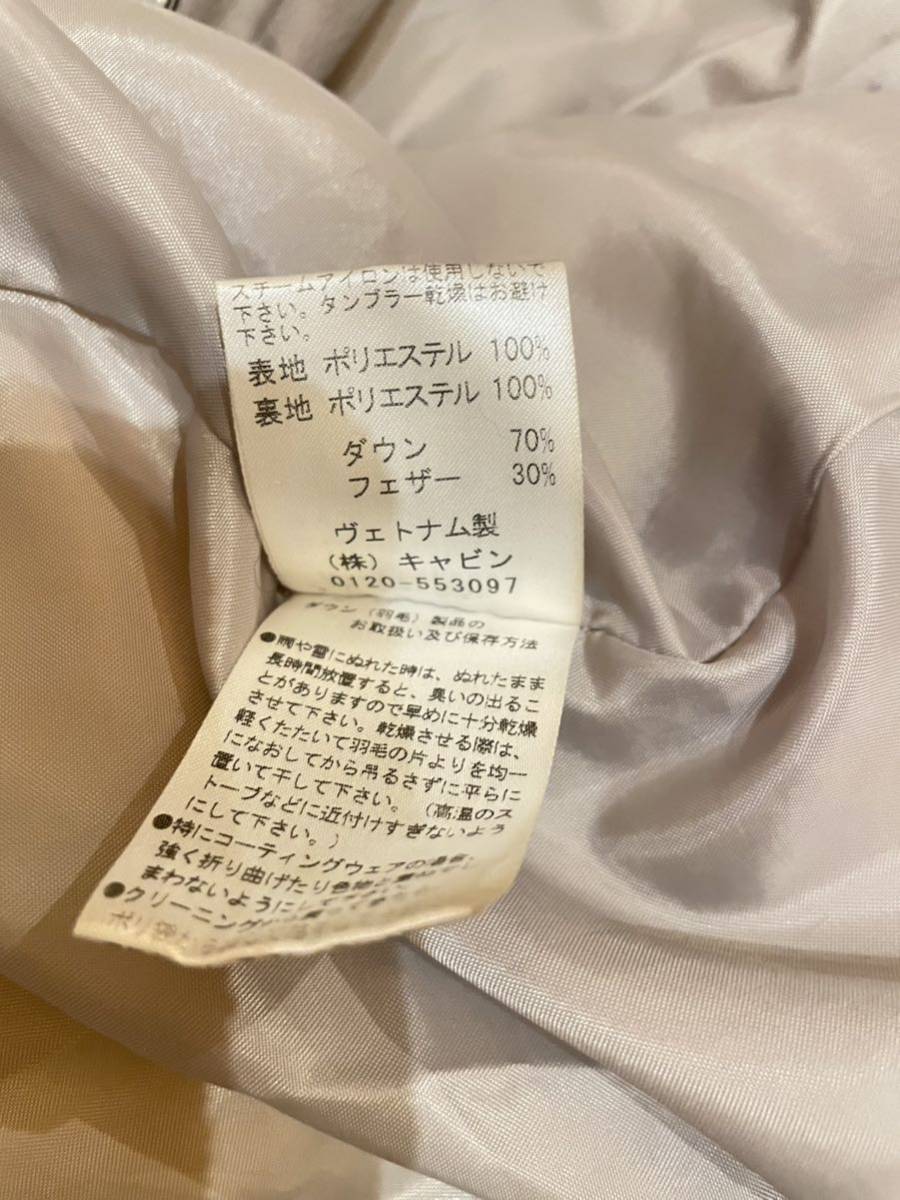 スチームアイロンは使用しないで
下さい。タンブラー乾燥はお避け
下さい。
表地 ポリエステル 100%
裏地 ポリエステル 100%
ダウン 70%
フェザー 30%
ヴェトナム製
(株) キャビン
0120-553097
ダウン (羽毛) 製品の
お取扱い及び保存方法
●雨や雪にぬれた時は、ぬれたまま
長時間放置すると、臭いの出るこ
とがありますので早めに十分乾燥
させて下さい。乾燥させる際は、
軽くたたいて羽毛の片よりを均一
になおしてから吊るさずに平らに
置いて干して下さい。(高温のス
トーブなどに近付けすぎないよう
にして下さい。)
●特にコーティングウェアの場合、
強く折り曲げたり色物と
まわないようにして下さい。
●クリーニング
ポリ袋から